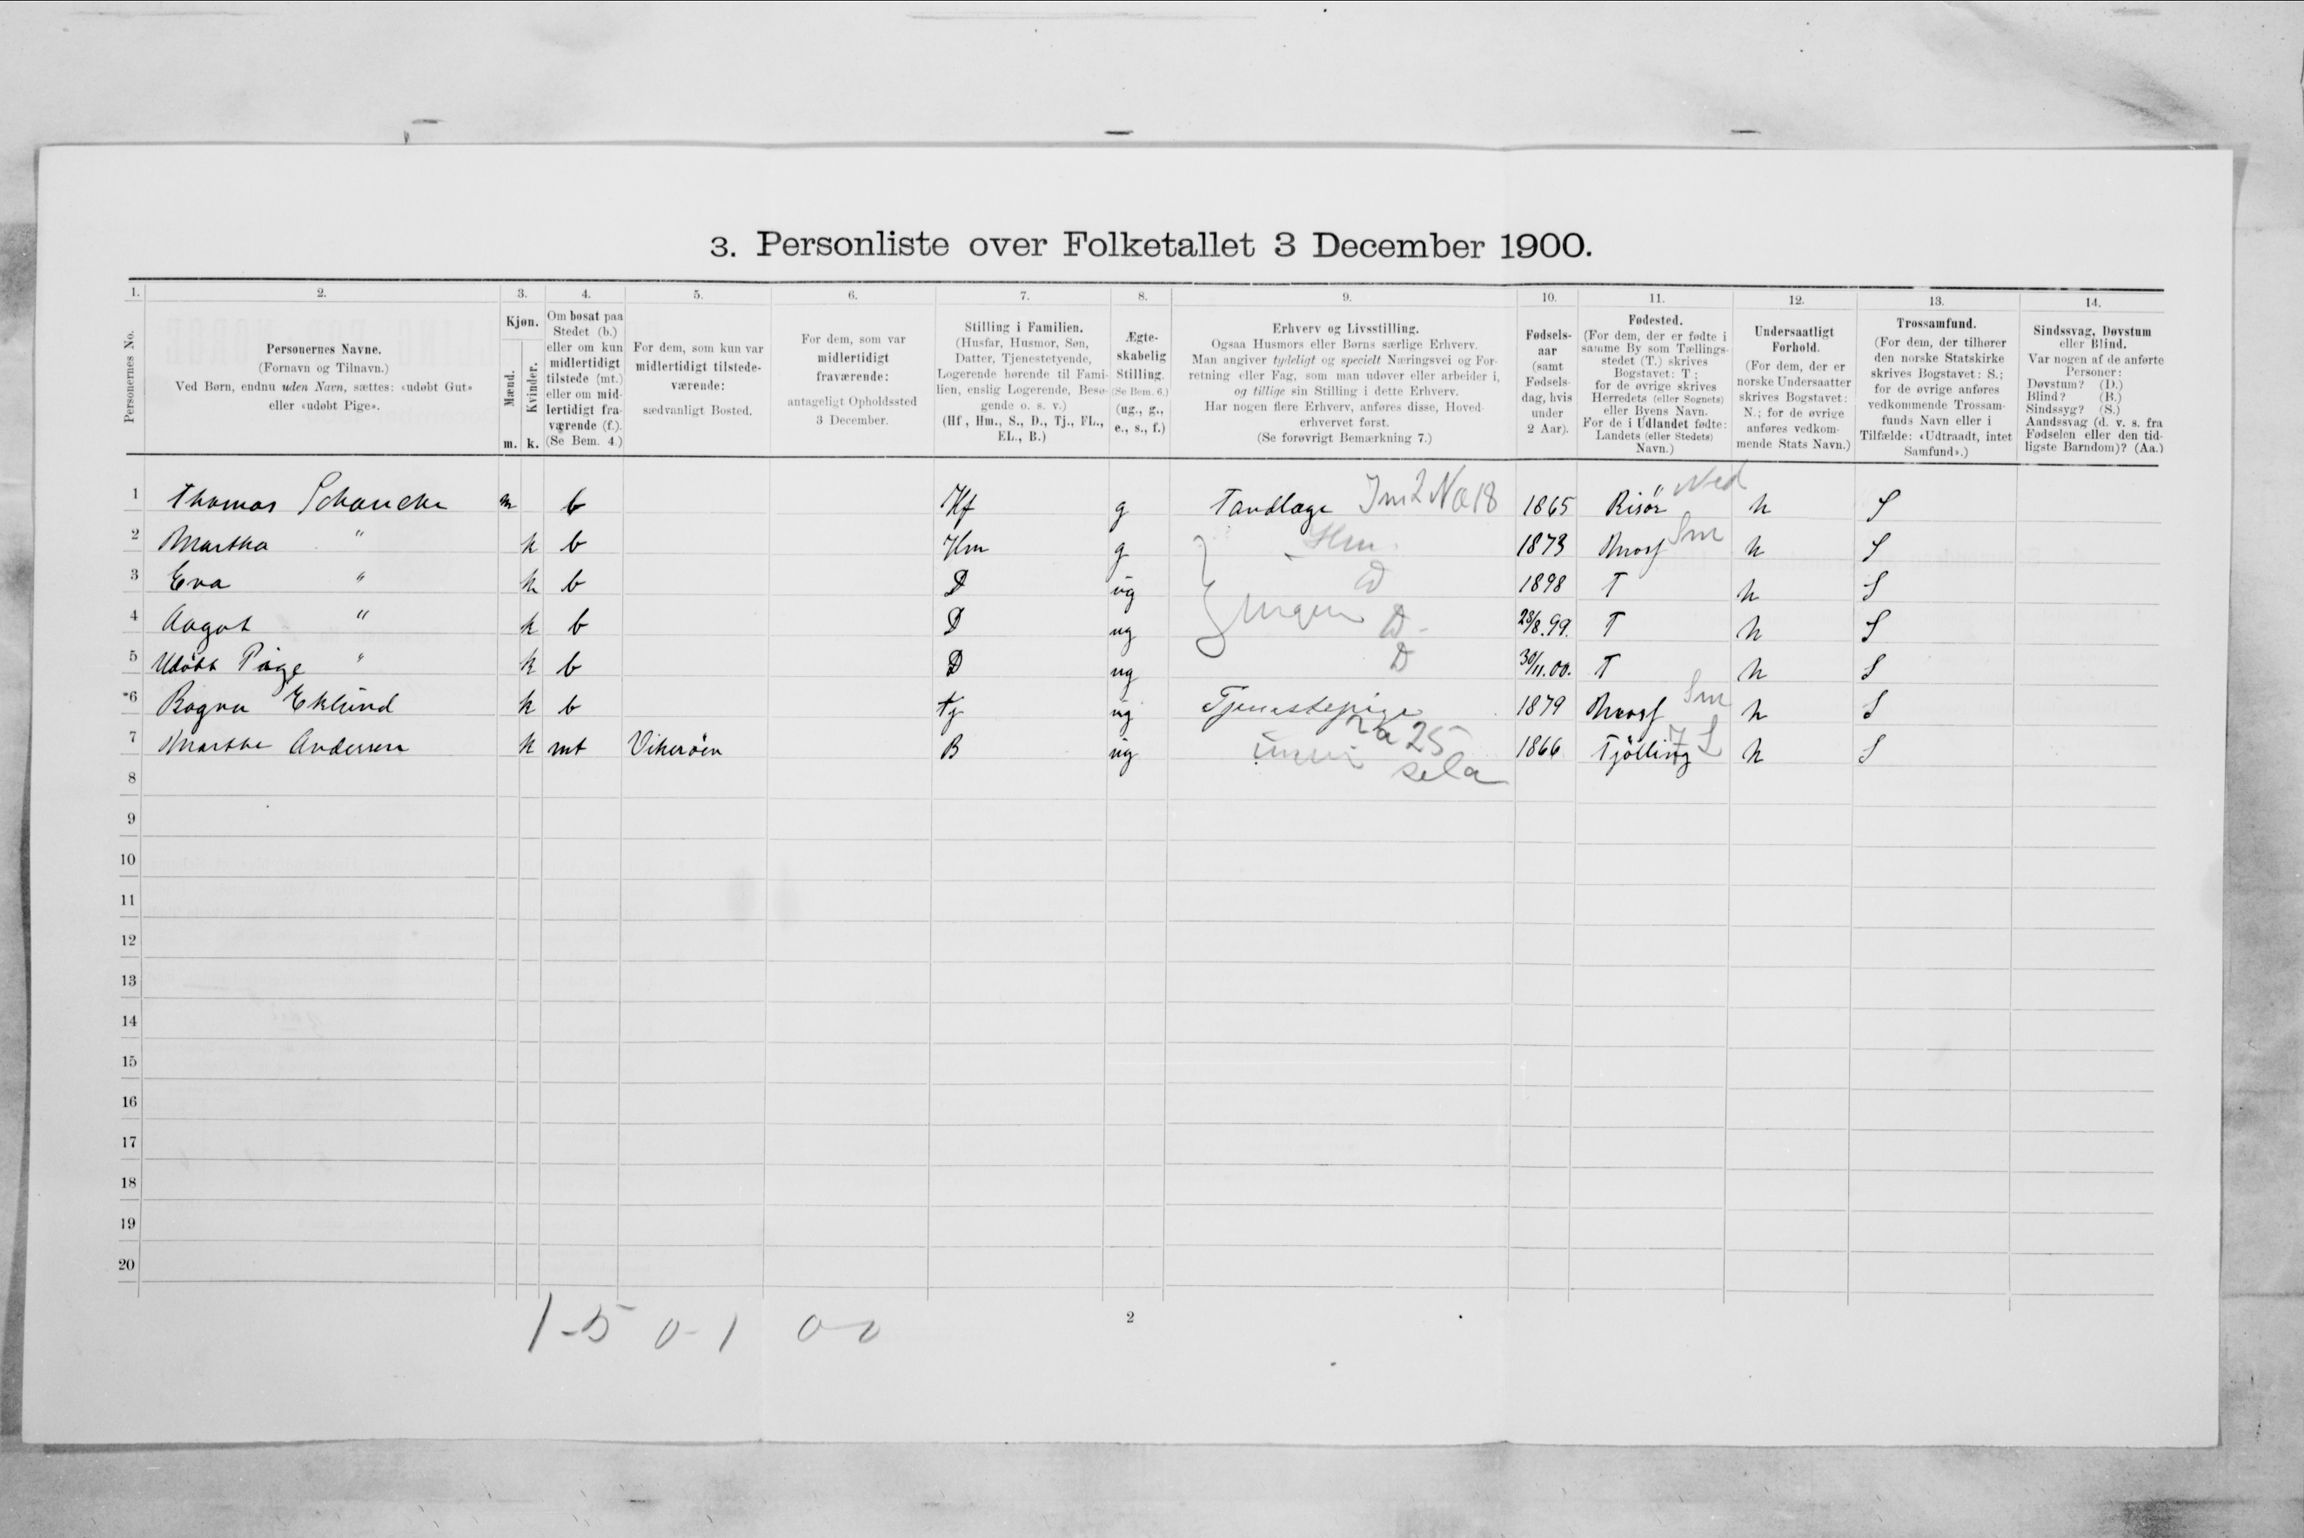 3. Personliste over Folketallet 3 December 1900.
1. 2. 3. 4. 5. 6. 7. 8. 9. 10. 11. 12. 13. 14.
Personernes No.
Personernes Navne.
(Fornavn og Tilnavn.)
Ved Børn, endnu uden Navn, sættes: «udøbt Gut»
eller «udøbt Pige».
Kjøn.
Mænd.
Kvinder.
m. k.
Om bosat paa
Stedet (b.)
eller om kun
midlertidigt
tilstede (mt.)
eller om mid-
lertidigt fra-
værende (f.).
(Se Bem. 4.)
For dem, som kun var
midlertidigt tilstede-
værende:
sædvanligt Bosted.
For dem, som var
midlertidigt
fraværende:
antageligt Opholdssted
3 December.
Stilling i Familien.
(Husfar, Husmor, Søn,
Datter, Tjenestetyende,
Logerende hørende til Fami-
lien, enslig Logerende, Besø-
gende o. s. v.)
(Hf, Hm., S., D., Tj., FL.,
EL., B.)
Ægte-
skabelig
Stilling.
(Se Bem. 6.)
(ug., g.,
e., s., f.)
Erhverv og Livsstilling.
Ogsaa Husmors eller Børns særlige Erhverv.
Man angiver tydeligt og specielt Næringsvei og For-
retning eller Fag, som man udøver eller arbeider i,
og tillige sin Stilling i dette Erhverv.
Har nogen flere Erhverv, anføres disse, Hoved-
erhvervet først.
(Se forøvrigt Bemærkning 7.)
Fødsels-
aar
(samt
Fødsels-
dag, hvis
under
2 Aar).
Fødested.
(For dem, der er fødte i
samme By som Tællings-
stedet (T.) skrives
Bogstavet: T.;
for de øvrige skrives
Herredets (eller Sognets)
eller Byens Navn.
For de i Udlandet fødte:
Landets (eller Stedets)
Navn.)
Undersaatligt
Forhold.
(For dem, der er
norske Undersaatter
skrives Bogstavet:
N.; for de øvrige
anføres vedkom-
mende Stats Navn.)
Trossamfund.
(For dem, der tilhører
den norske Statskirke
skrives Bogstavet: S.;
for de øvrige anføres
vedkommende Trossam-
funds Navn eller i
Tilfælde: «Udtraadt, intet
Samfund».)
Sindssvag, Døvstum
eller Blind.
Var nogen af de anførte
Personer:
Døvstum? (D.)
Blind? (B.)
Sindssyg? (S.)
Aandssvag (d. v. s. fra
Fødselen eller den tid-
ligste Barndom)? (Aa.)
1 Thomas Schancke m b Hf g Tandlæge 1865 Risör n S
2 Martha " k b Hm g Hm. 1873 Moss Sm n S
3 Eva " k b D ug D 1898 T n S
4 Aagot " k b D ug Ingen D 28/8.99. T n S
5 Udöbt Pige " k b D ug D 30/11.00. T n S
6 Ragna Eklund k b tj ug Tjenestepige 1879 Moss Sm n S
7 Marthe Andersen k mt Vikeröen B ug 25 1866 Tjölling n S
8
9
10
11
12
13
14
15
16
17
18
19
20
1-5 0-1 0-0
2